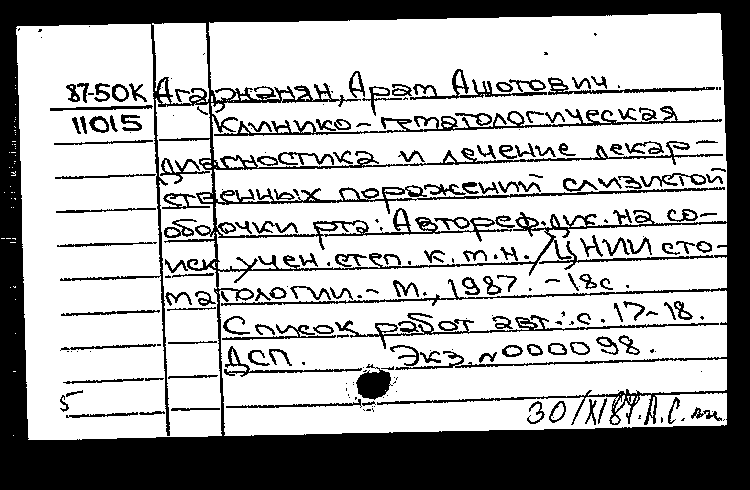 87-50К Агаджанян, Арам Ашотович.
11015 Клинико-гематологическая
диагностика и лечение лекар-
ственных поражений слизистой
оболочки рта: Автореф. дис. на со-
иск. учен. степ. к.м.н. / ЦНИИ сто-
матологии. - М., 1987. - 18с.
Список работ авт.: с. 17-18.
ДСП. Экз. №000098.
5
30/XI87. А.С.